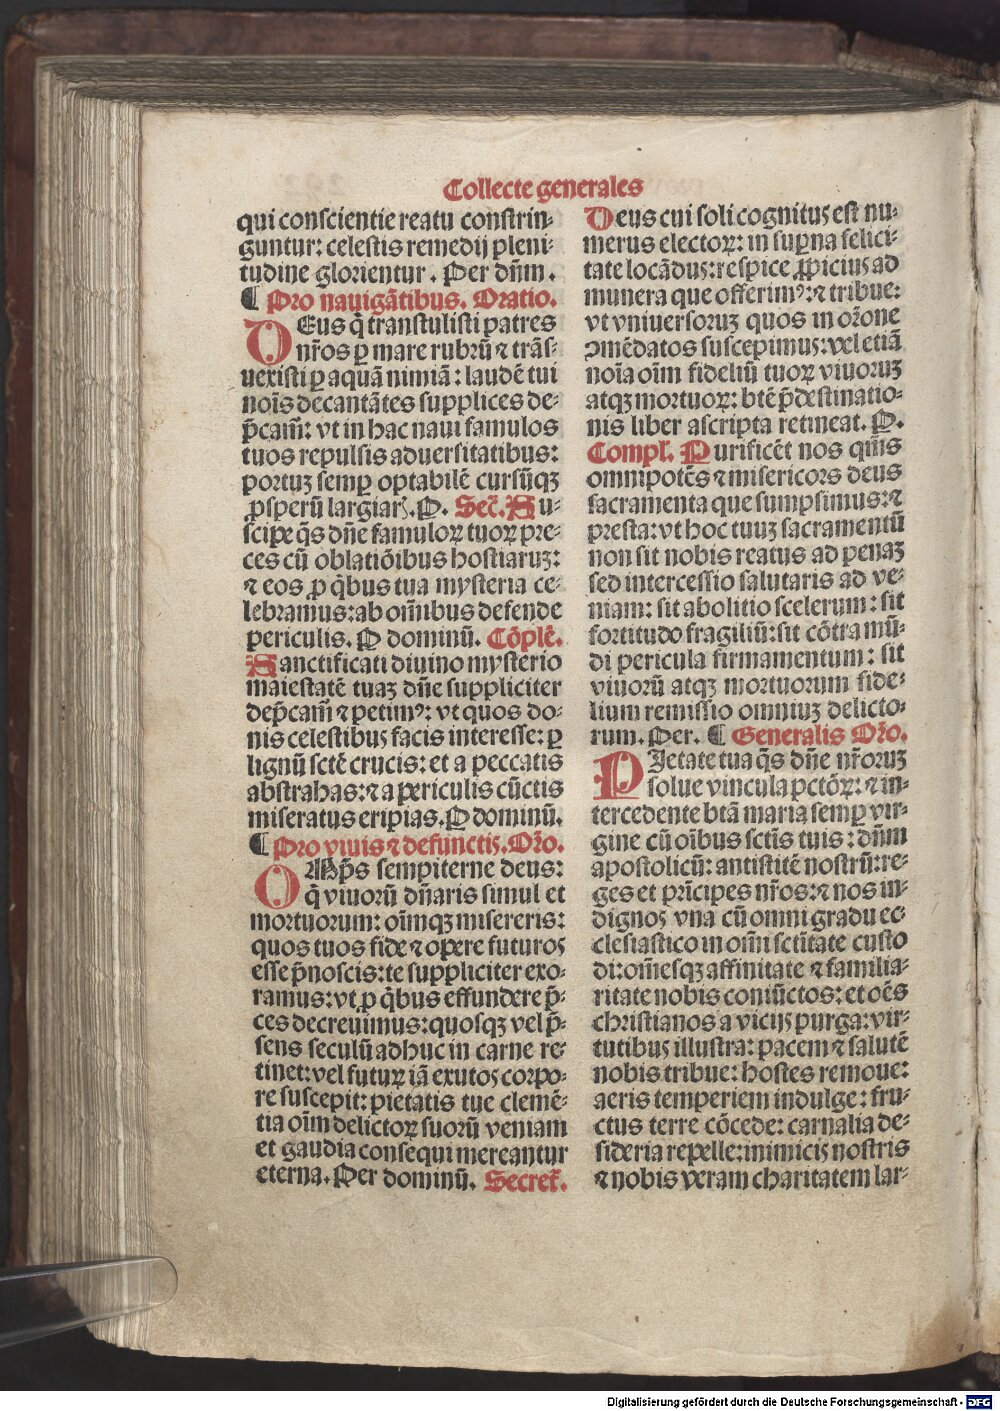 Collecte generales
qui conscientie reatu constrin-
guntur: celestis remedij pleni-
tudine glorientur. Per dn̄m.
¶ Pro nauigātibus. Oratio.
DEus q̄ transtulisti patres
nr̄os ꝑ mare rubrū ⁊ trās-
uexisti ꝑ aquā nimiā: laudē tui
nōis decantātes supplices de-
p̄cam̄: vt in hac naui famulos
tuos repulsis aduersitatibus:
portuꝫ semꝑ optabilē cursūqꝫ
ꝓsperū largiarꝭ. P. Sec̄. Su-
scipe q̄s dn̄e famuloꝝ tuoꝝ pre-
ces cū oblatiōibus hostiaruꝫ:
⁊ eos ꝓ q̄bus tua mysteria ce-
lebramus: ab om̄ibus defende
periculis. P dominū. Cōplē.
Sanctificati diuino mysterio
maiestatē tuaꝫ dn̄e suppliciter
dep̄cam̄ ⁊ petimꝰ: vt quos do-
nis celestibus facis interesse: ꝑ
lignū sctē crucis: et a peccatis
abstrahas: ⁊ a periculis cūctis
miseratus eripias. P dominū.
¶ Pro viuis ⁊ defunctis. Or̄o.
OMp̄s sempiterne deus:
q̄ viuorū dn̄aris simul et
mortuorum: oīmqꝫ misereris:
quos tuos fide ⁊ opere futuros
esse p̄noscis: te suppliciter exo-
ramus: vt ꝓ q̄bus effundere p̄-
ces decreuimus: quosqꝫ vel p̄-
sens seculū adhuc in carne re-
tinet: vel futuꝝ iā exutos corpo-
re suscepit: pietatis tue clemē-
tia oīm delictoꝝ suorū veniam
et gaudia consequi mereantur
eterna. Per dominū. Secret̄.
Deus cui soli cognitus est nu-
merus electoꝝ: in suꝑna felici-
tate locādus: respice ꝓpicius ad
munera que offerimꝰ: ⁊ tribue:
vt vniuersoruꝫ quos in or̄one
ꝯmēdatos suscepimus: vel etiā
nōia oīm fideliū tuoꝝ viuoruꝫ
atqꝫ mortuoꝝ: btē p̄destinatio-
nis liber ascripta retineat. P.
Compl̄. Purificēt nos qm̄is
omnipotēs ⁊ misericors deus
sacramenta que sumpsimus: ⁊
presta: vt hoc tuuꝫ sacramentū
non sit nobis reatus ad penaꝫ
sed intercessio salutaris ad ve-
niam: sit abolitio scelerum: sit
fortitudo fragiliū: sit cōtra mū-
di pericula firmamentum: sit
viuorū atqꝫ mortuorum fide-
lium remissio omniuꝫ delicto-
rum. Per. ¶ Generalis Or̄o.
PIetate tua q̄s dn̄e nr̄oruꝫ
solue vincula pctōꝝ: ⁊ in-
tercedente btā maria semꝑ vir-
gine cū oībus sctīs tuis: dn̄m
apostolicū: antistitē nostrū: re-
ges et prīcipes nr̄os: ⁊ nos in-
dignos vna cū omni gradu ec-
clesiastico in om̄i sctītate custo
di: om̄esqꝫ affinitate ⁊ familia-
ritate nobis coniūctos: et oēs
christianos a vicijs purga: vir-
tutibus illustra: pacem ⁊ salutē
nobis tribue: hostes remoue:
aeris temperiem indulge: fru-
ctus terre cōcede: carnalia de-
sideria repelle: inimicis nostris
⁊ nobis veram charitatem lar-
Digitalisierung gefördert durch die Deutsche Forschungsgemeinschaft - DFG